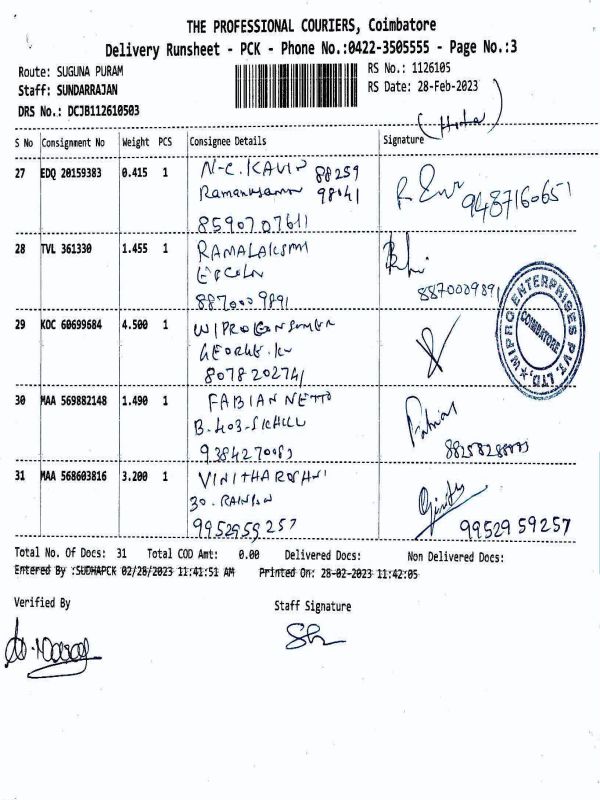 THE PROFESSIONAL COURIERS, Coimbatore
Delivery Runsheet - PCK - Phone No.:0422-3505555 - Page No.:3
Route: SUGUNA PURAM
RS No.: 1126105
Staff: SUNDARRAJAN
RS Date: 28-Feb-2023
DRS No.: DCJB112610503
S No Consignment No Weight PCS Consignee Details Signature
27 EDQ 20159383 0.415 1 N-C. KAVIN 88259
98041
8590707611
9487160651
28 TVL 361330 1.455 1 RAMALAKSMI
8870009891
8870009891
29 KOC 60699684 4.500 1 WIPRO CONSUMER
GEORGE.K
8078202741
WIPRO ENTERPRISES PVT. LTD.
COIMBATORE
30 MAA 569882148 1.490 1 FABIAN NETTO
B-403-
9384270083
31 MAA 568603816 3.200 1 VINITHAROSHNI
30. RAINBOW
9952959257
9952959257
Total No. Of Docs: 31 Total COD Amt: 0.00 Delivered Docs: Non Delivered Docs:
Entered By :SUDHAPCK 02/28/2023 11:41:51 AM Printed On: 28-02-2023 11:42:05
Verified By
Staff Signature